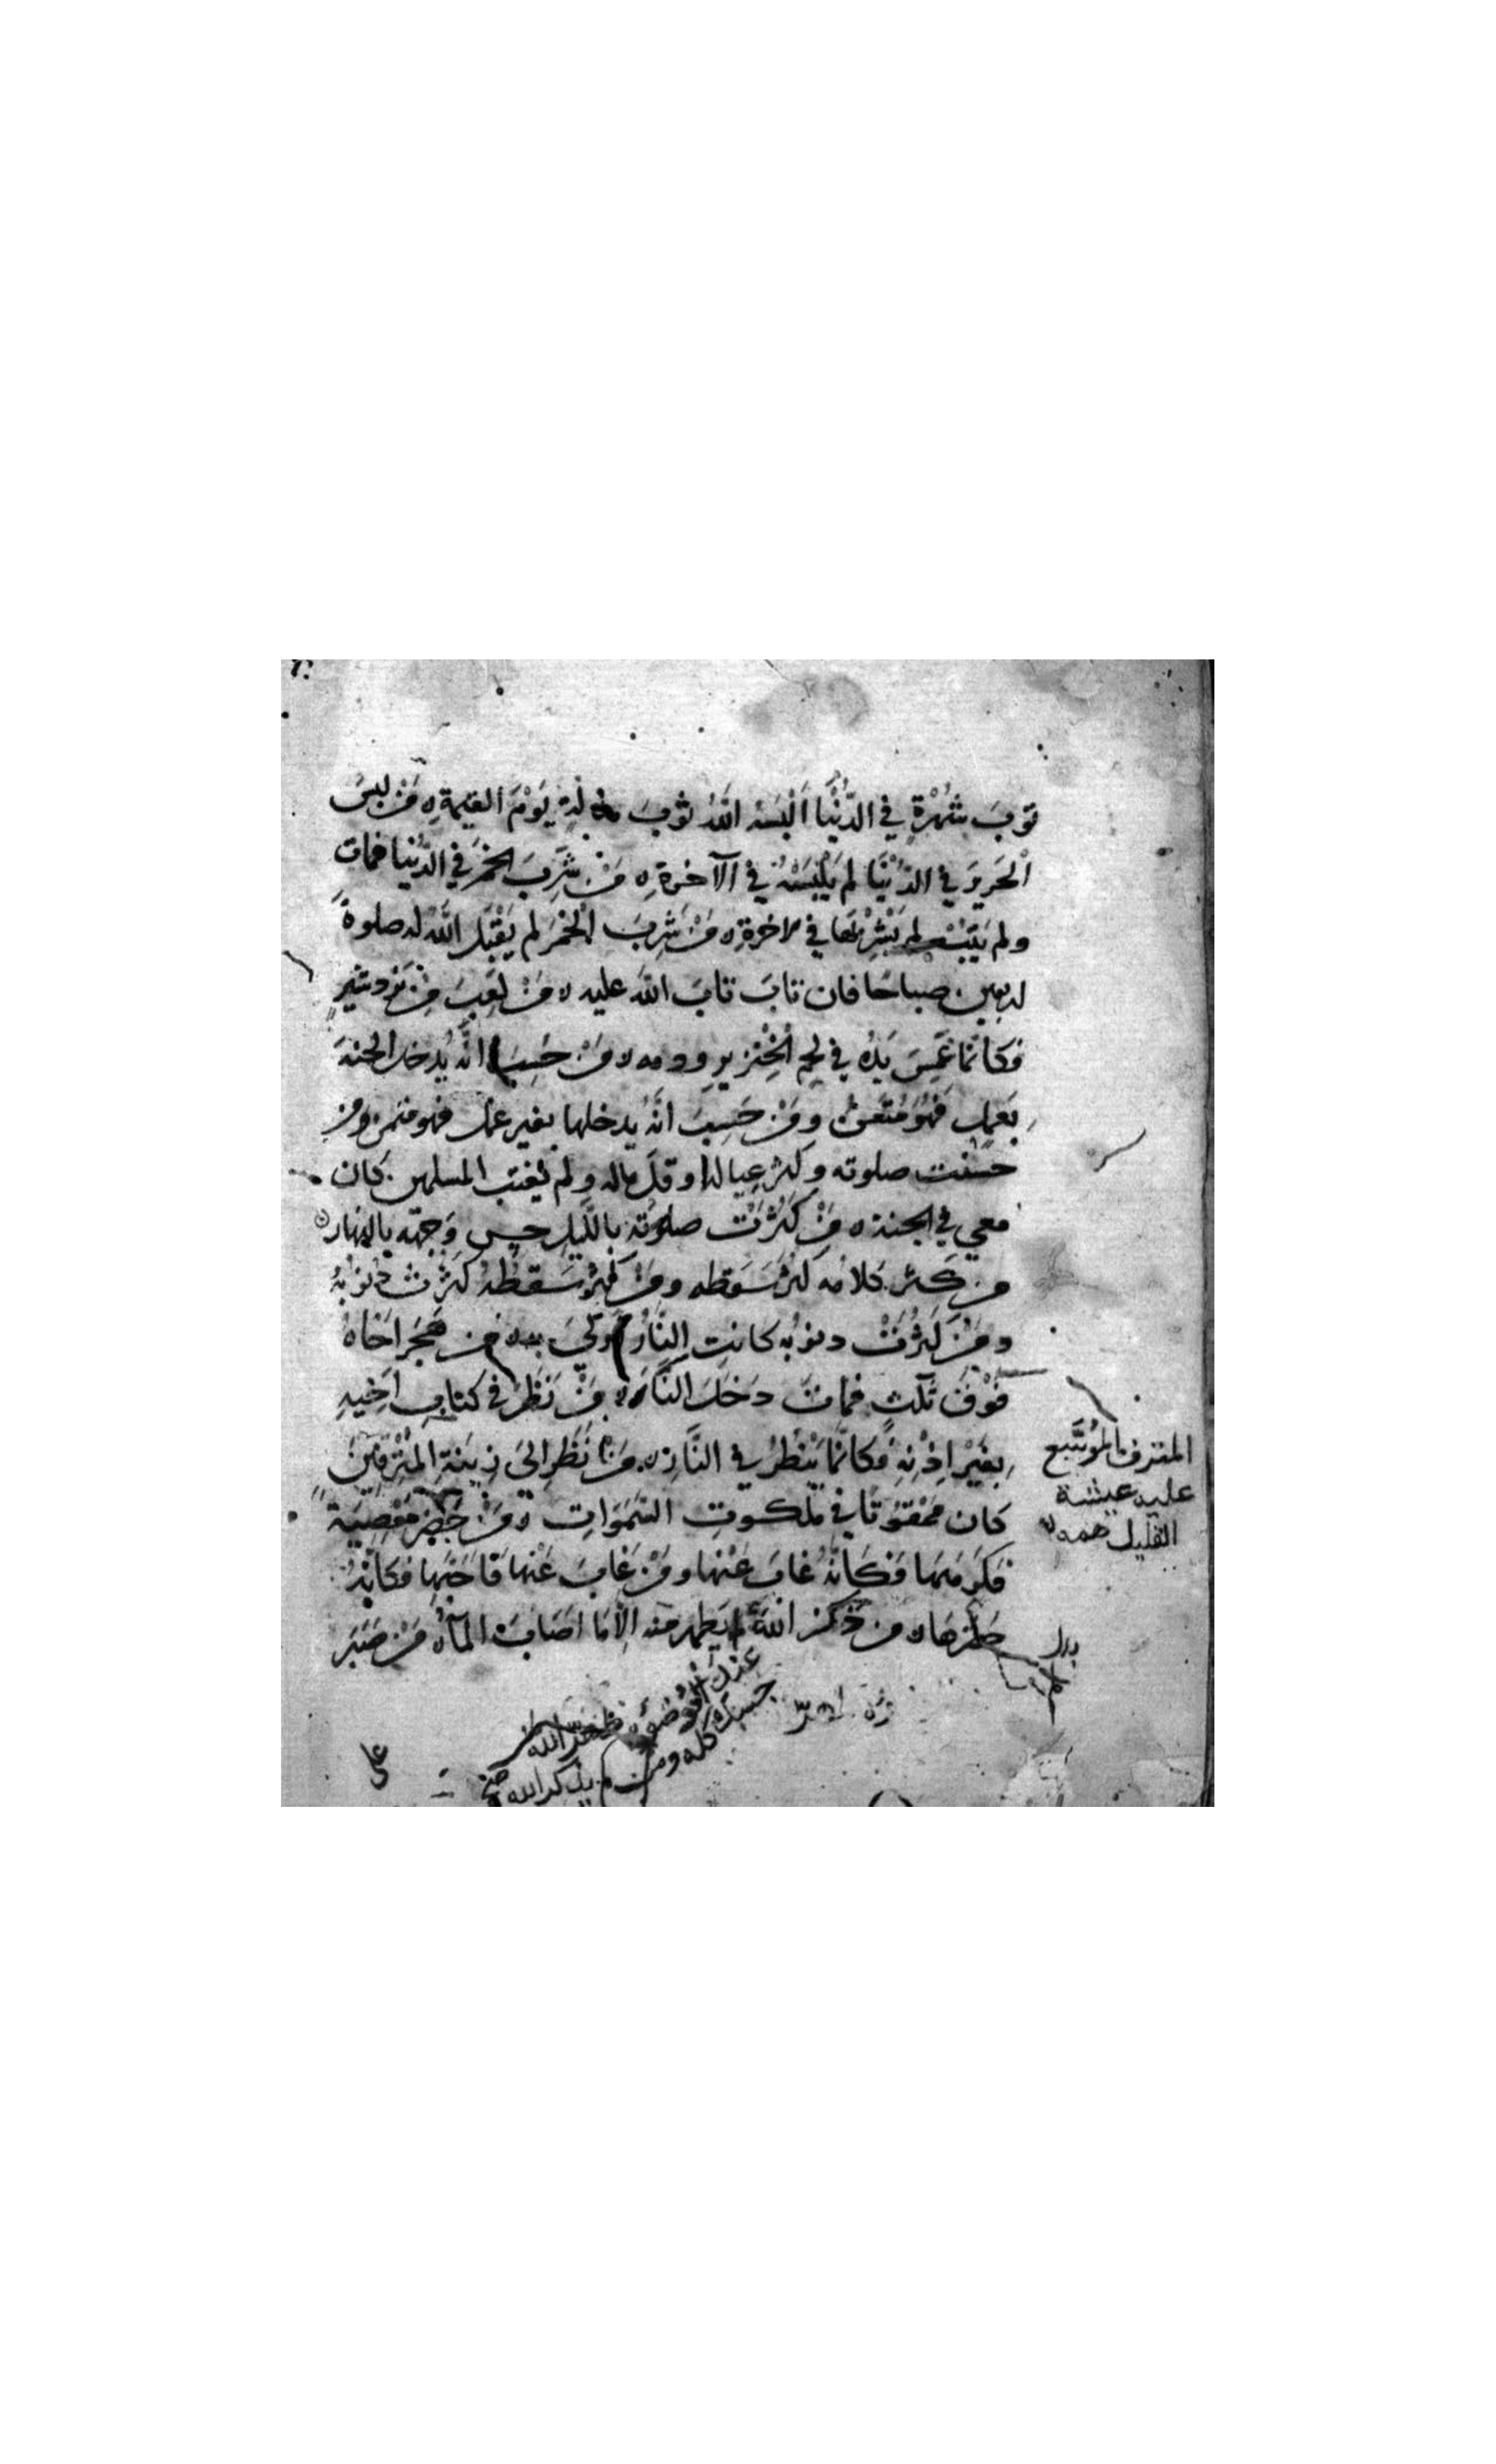 ثوبَ شُهْرَةٍ في الدُّنْيَا اَلْبَسَهُ اللّٰهُ ثوبَ مذلّةٍ يَوْمَ القيمةِ ه مَنْ لبسَ
الْحَريرَ في الدُّنْيَا لم يَلْبَسْهُ في الآخرةِ ه مَنْ شَرِبَ الخمرَ في الدُّنيا فمات
ولم يَتُبْ لم يَشْرَبْها في الاخرةِ ه مَنْ شَرِبَ الْخمرَ لم يَقْبَلِ اللّٰه له صلوةً
اربعين صباحًا فان تابَ تابَ اللّٰه عليه ه مَنْ لَعِبَ بنردشيرٍ
فكانّما غَمَسَ يَدُه في لحم الْخِنْزيرِ ودمه ه مَنْ حَسِبَ انّه يدخل الجنةَ
بِعَملٍ فَهُوَ مُتَعَنٍّ ومَنْ حَسِبَ انَّه يدخلها بغير عمل فهو متمنٍ ومن
حَسُنت صلوته وكثر عِياله وقَلَّ ماله ولم يَغْتب المسلمين كان
معي في الجنة ه مَنْ كَثُرَتْ صلوتُه باللّيلِ حسن وَجهُه بالنهار ه
من كثر كلامُه كَثُرَ سَقطه ومَنْ كَثُرَ سَقَطُهُ كَثُرَتْ ذنوبُهُ
ومَنْ كَثُرَتْ ذنوبُه كانتِ النَّارُ اَوْلى به ه من هَجَرَ اَخَاهُ
فَوْقَ ثَلٰثٍ فماتَ دَخَلَ النَّارَ ه مَنْ نَظَرَ في كتابِ اَخِيهِ
بِغَيْرِ اِذْنِهِ فَكَانَّمَا يَنْظُرُ في النَّارِ ه مَنْ نَظَرَ اِلىَ زِينَةِ المُتْرَفِينَ
كان مَمْقُوتًا في مَلكوتِ السَّمَوَاتِ ه مَنْ حَضَرَ مَعْصِيَةً
فَكَرِهَها فَكَاَنَّهُ غابَ عَنْها ومَنْ غابَ عَنْها فَاَحَبَّها فكانّهُ
حَضَرَها ه من ذكر اللّٰه لم يطهر منه الّا مَا اَصَابَ الماءُ ه مَنْ صَبَرَ
المترف الموسّع
عليه عيشه
القليل همه
عند الوضوء طهّر اللّٰه
جسده كله ومن لم يذكر اللّٰه صح
على